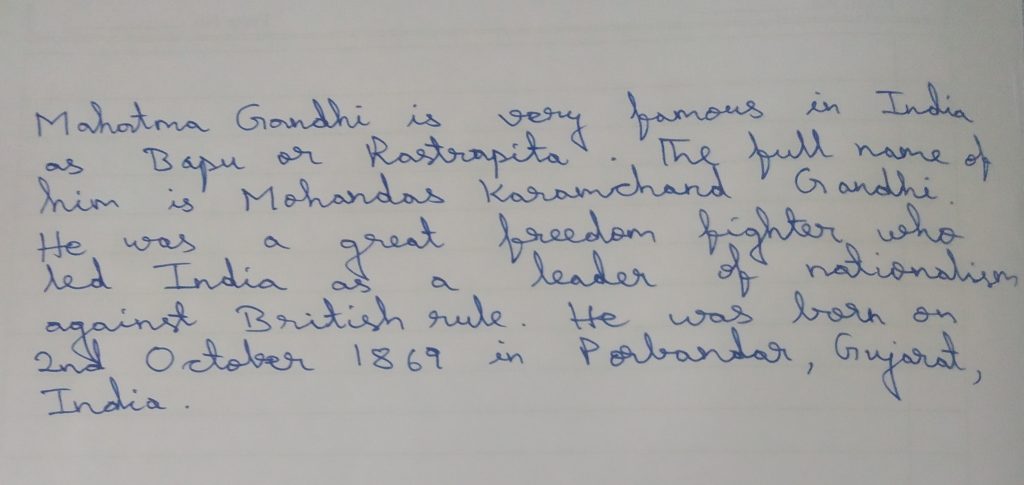 Mahatma Gandhi is very famous in India
as Bapu or Rastrapita. The full name of
him is Mohandas Karamchand Gandhi.
He was a great freedom fighter who
led India as a leader of nationalism
against British rule. He was born on
2nd October 1869 in Porbandar, Gujarat,
India.